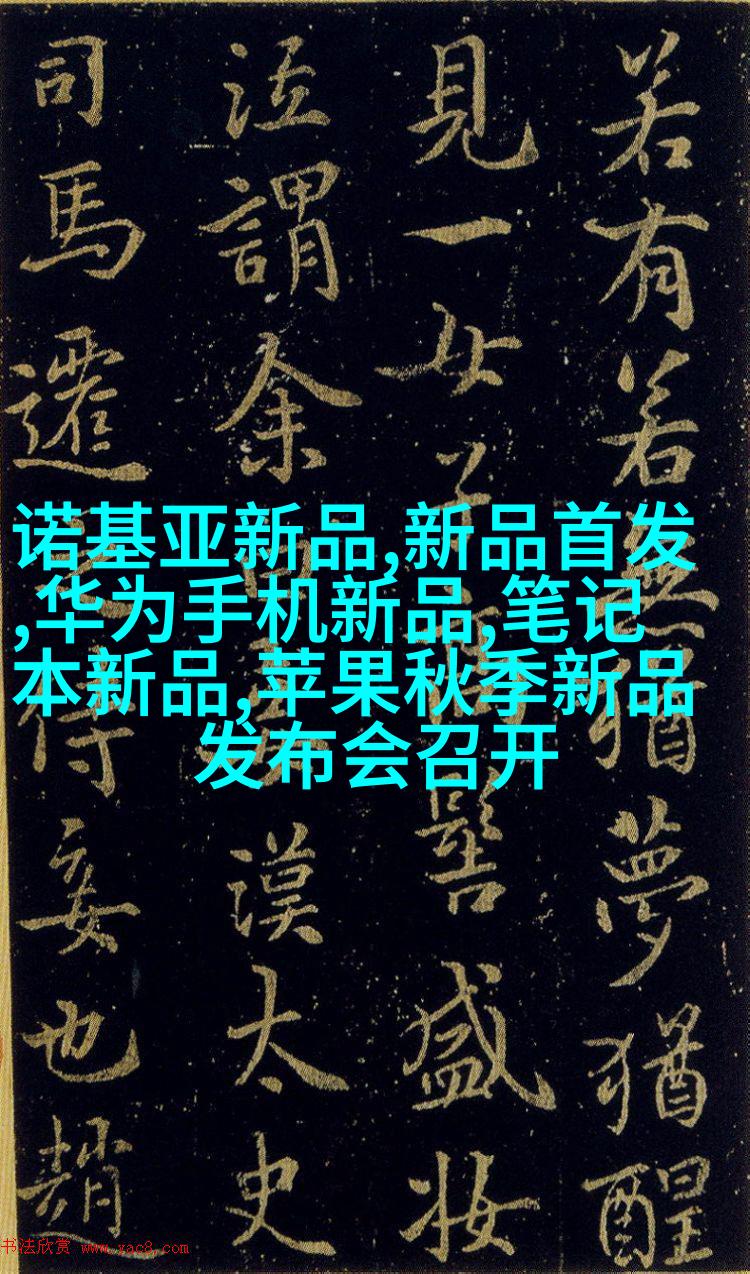 若有若無猶夢猶醒
見一女子髻盛妝
泣謂余曰妾漢太史
司馬遷之侍妾也趙
诺基亚新品,新品首发
,华为手机新品,笔记
本新品,苹果秋季新品
发布会召开
书法欣赏 www.yac8.com